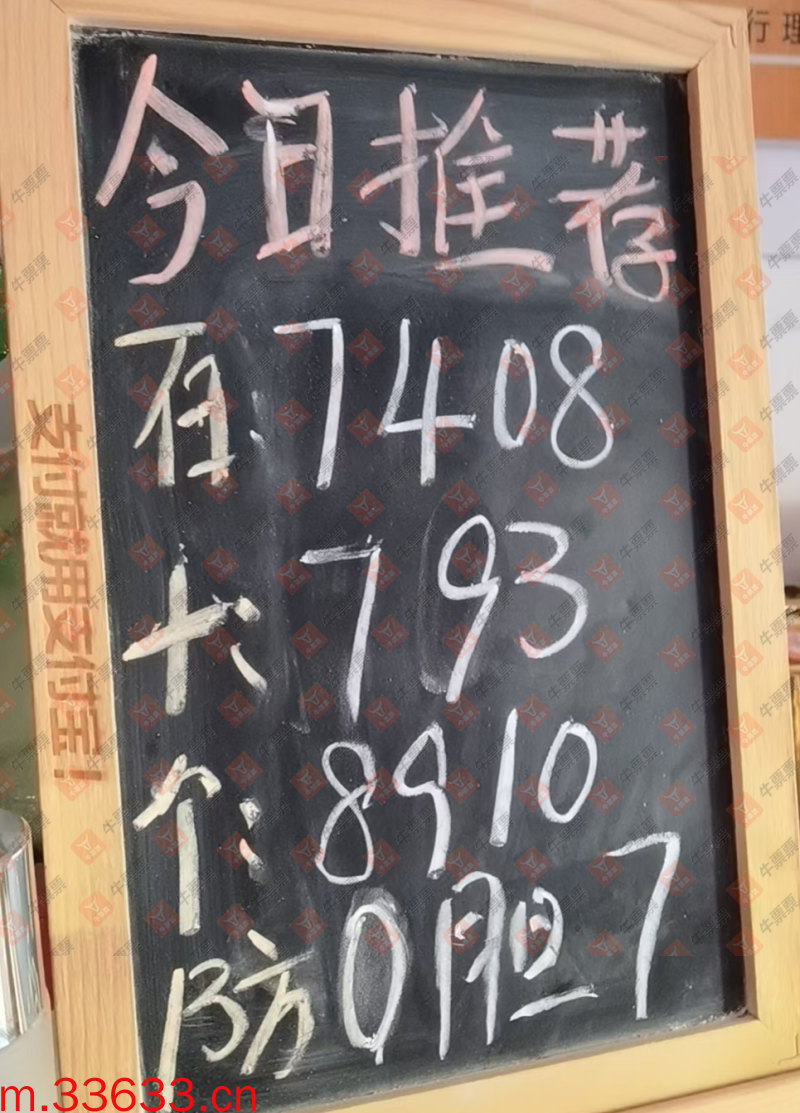 行理
今日推荐
百:7408
十:793
个:8910
防0胆7
支付就用支付宝!
牛票票
m.33633.cn